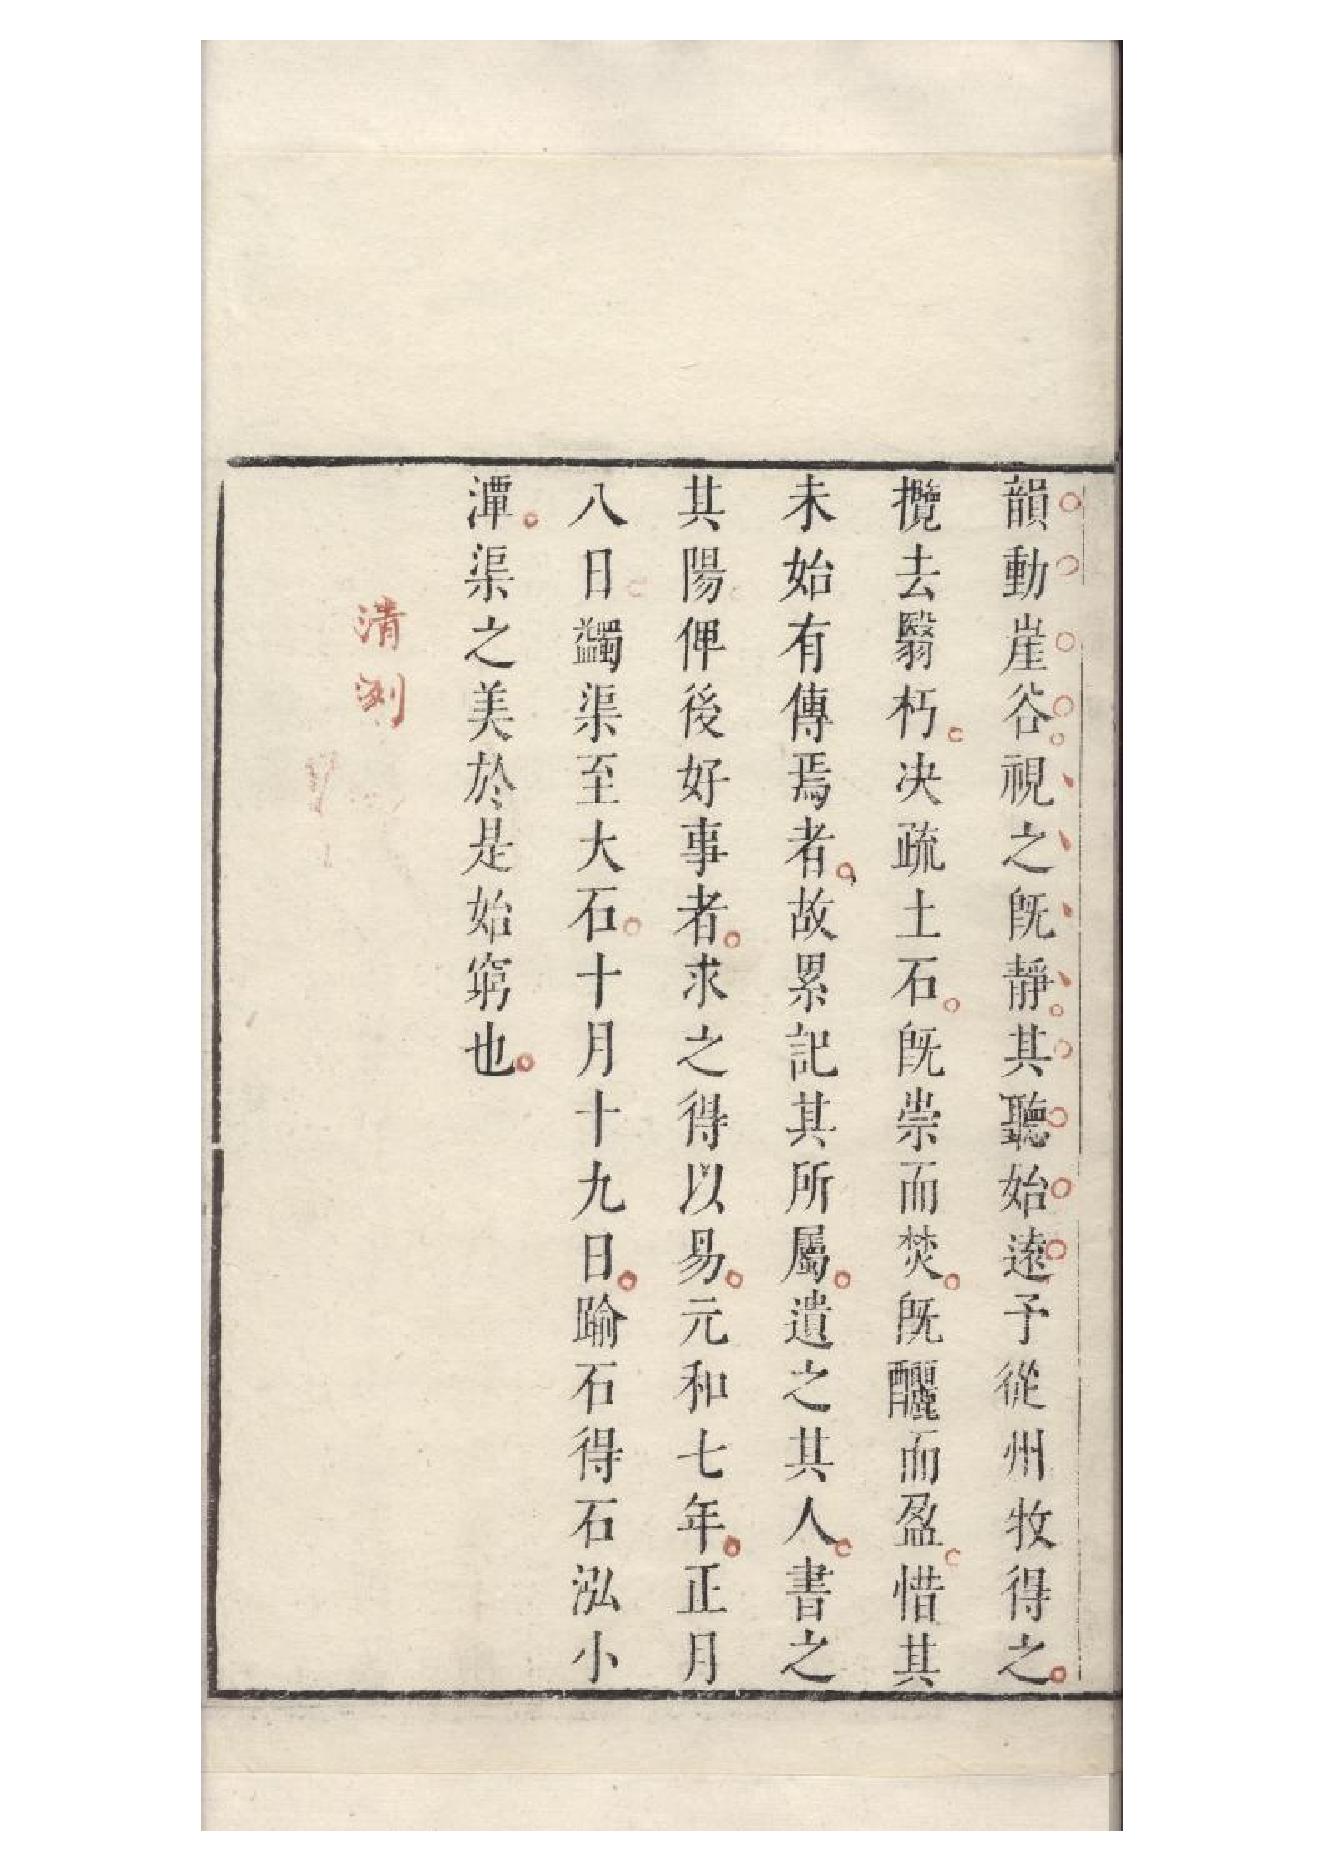 韻動崖谷視之既靜其聽始遠予從州牧得之
攬去翳朽决疏土石既崇而焚既釃而盈惜其
未始有傳焉者故累記其所屬遺之其人書之
其陽俾後好事者求之得以易元和七年正月
八日蠲渠至大石十月十九日踰石得石泓小
潭渠之美於是始窮也
清冽